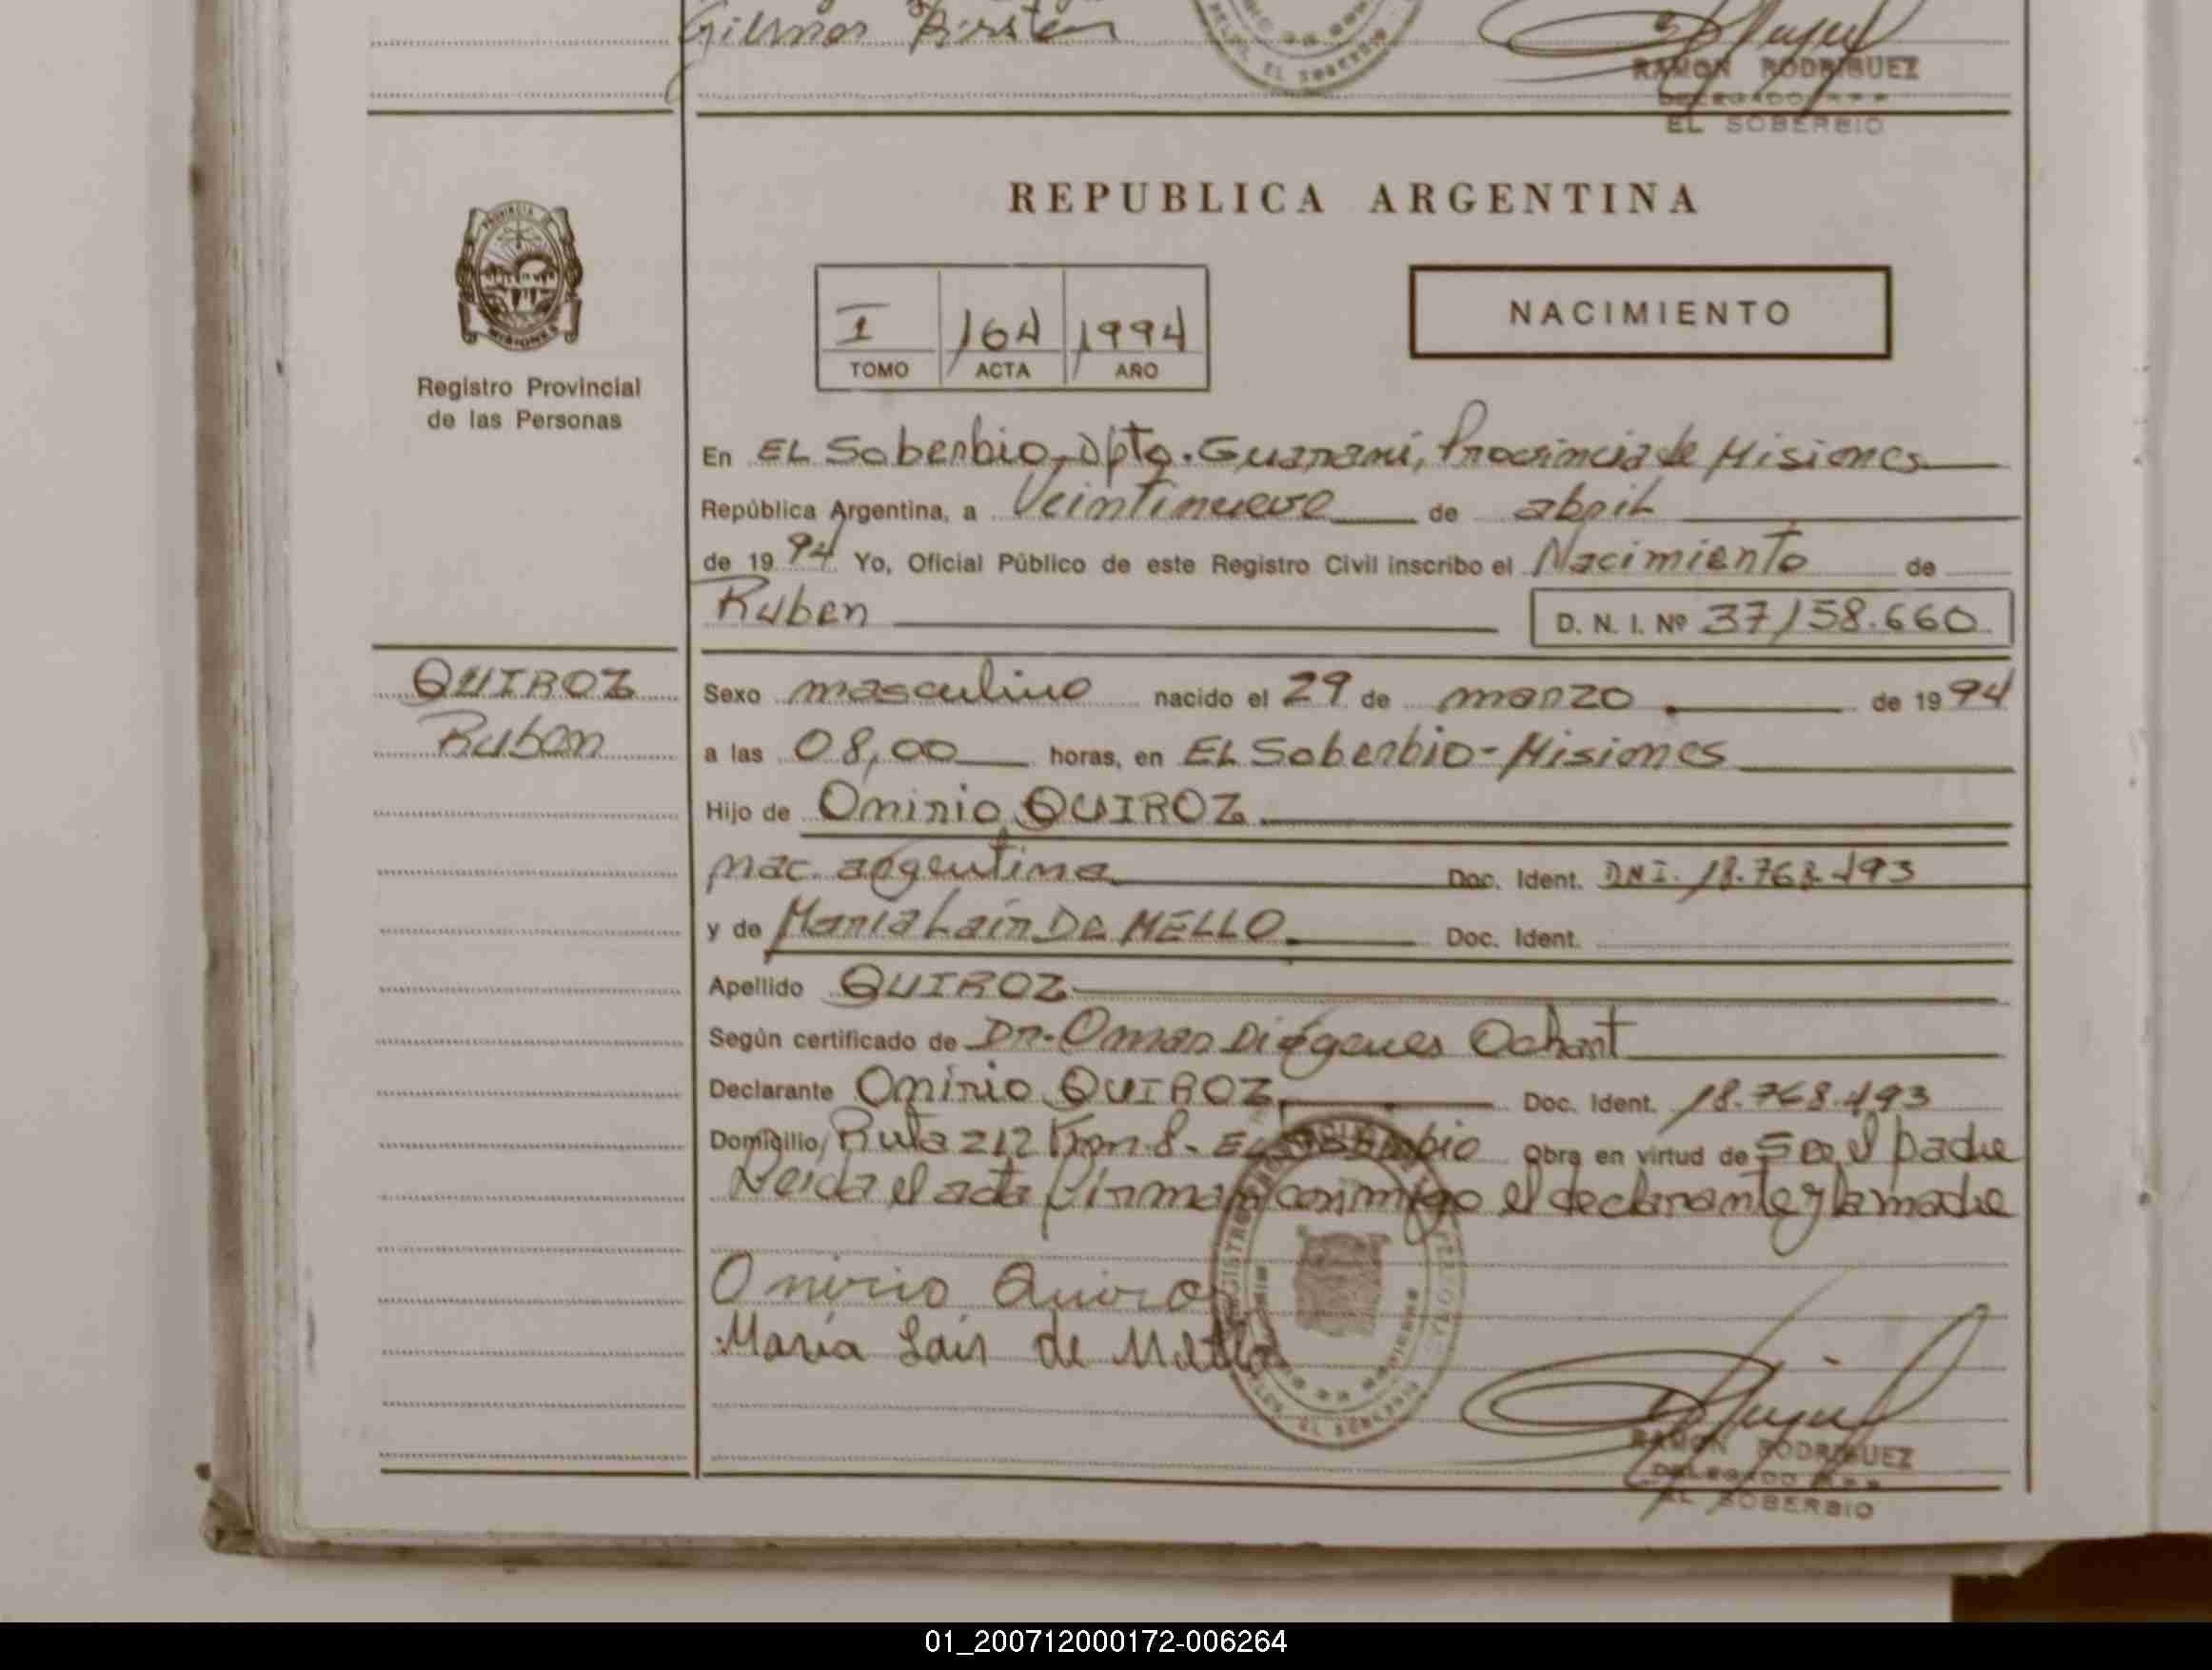 Gilmar Kirsten
DELEG. EL SOBERBIO
RAMON RODRIGUEZ
DELEGADO R P P
EL SOBERBIO
PROVINCIA DE
MISIONES
Registro Provincial
de las Personas
REPUBLICA ARGENTINA
I 164 1994
TOMO ACTA AÑO
NACIMIENTO
En EL Soberbio, Dpto. Guarani, Provincia de Misiones
República Argentina, a Veintinueve de abril
de 1994 Yo, Oficial Público de este Registro Civil inscribo el Nacimiento de
Ruben D. N. I. Nº 37158.660
QUIROZ
Ruben
Sexo masculino nacido el 29 de marzo de 1994
a las 08,00 horas, en EL Soberbio-Misiones
Hijo de Omirio QUIROZ
nac. argentina Doc. Ident. DNI. 18.768.193
y de Maria Lair DE MELLO Doc. Ident.
Apellido QUIROZ
Según certificado de Dr. Omar Diógenes Ochant
Declarante Omirio QUIROZ Doc. Ident. 18.768.193
Domicilio Ruta 212 Km. 8- EL Soberbio Obra en virtud de Ser el padre
Leida el acta firman conmigo el declarante y la madre
Omirio Quiroz
Maria Lair de Mello
DELEG. EL SOBERBIO
RAMON RODRIGUEZ
DELEGADO R P P
EL SOBERBIO
01_200712000172-006264